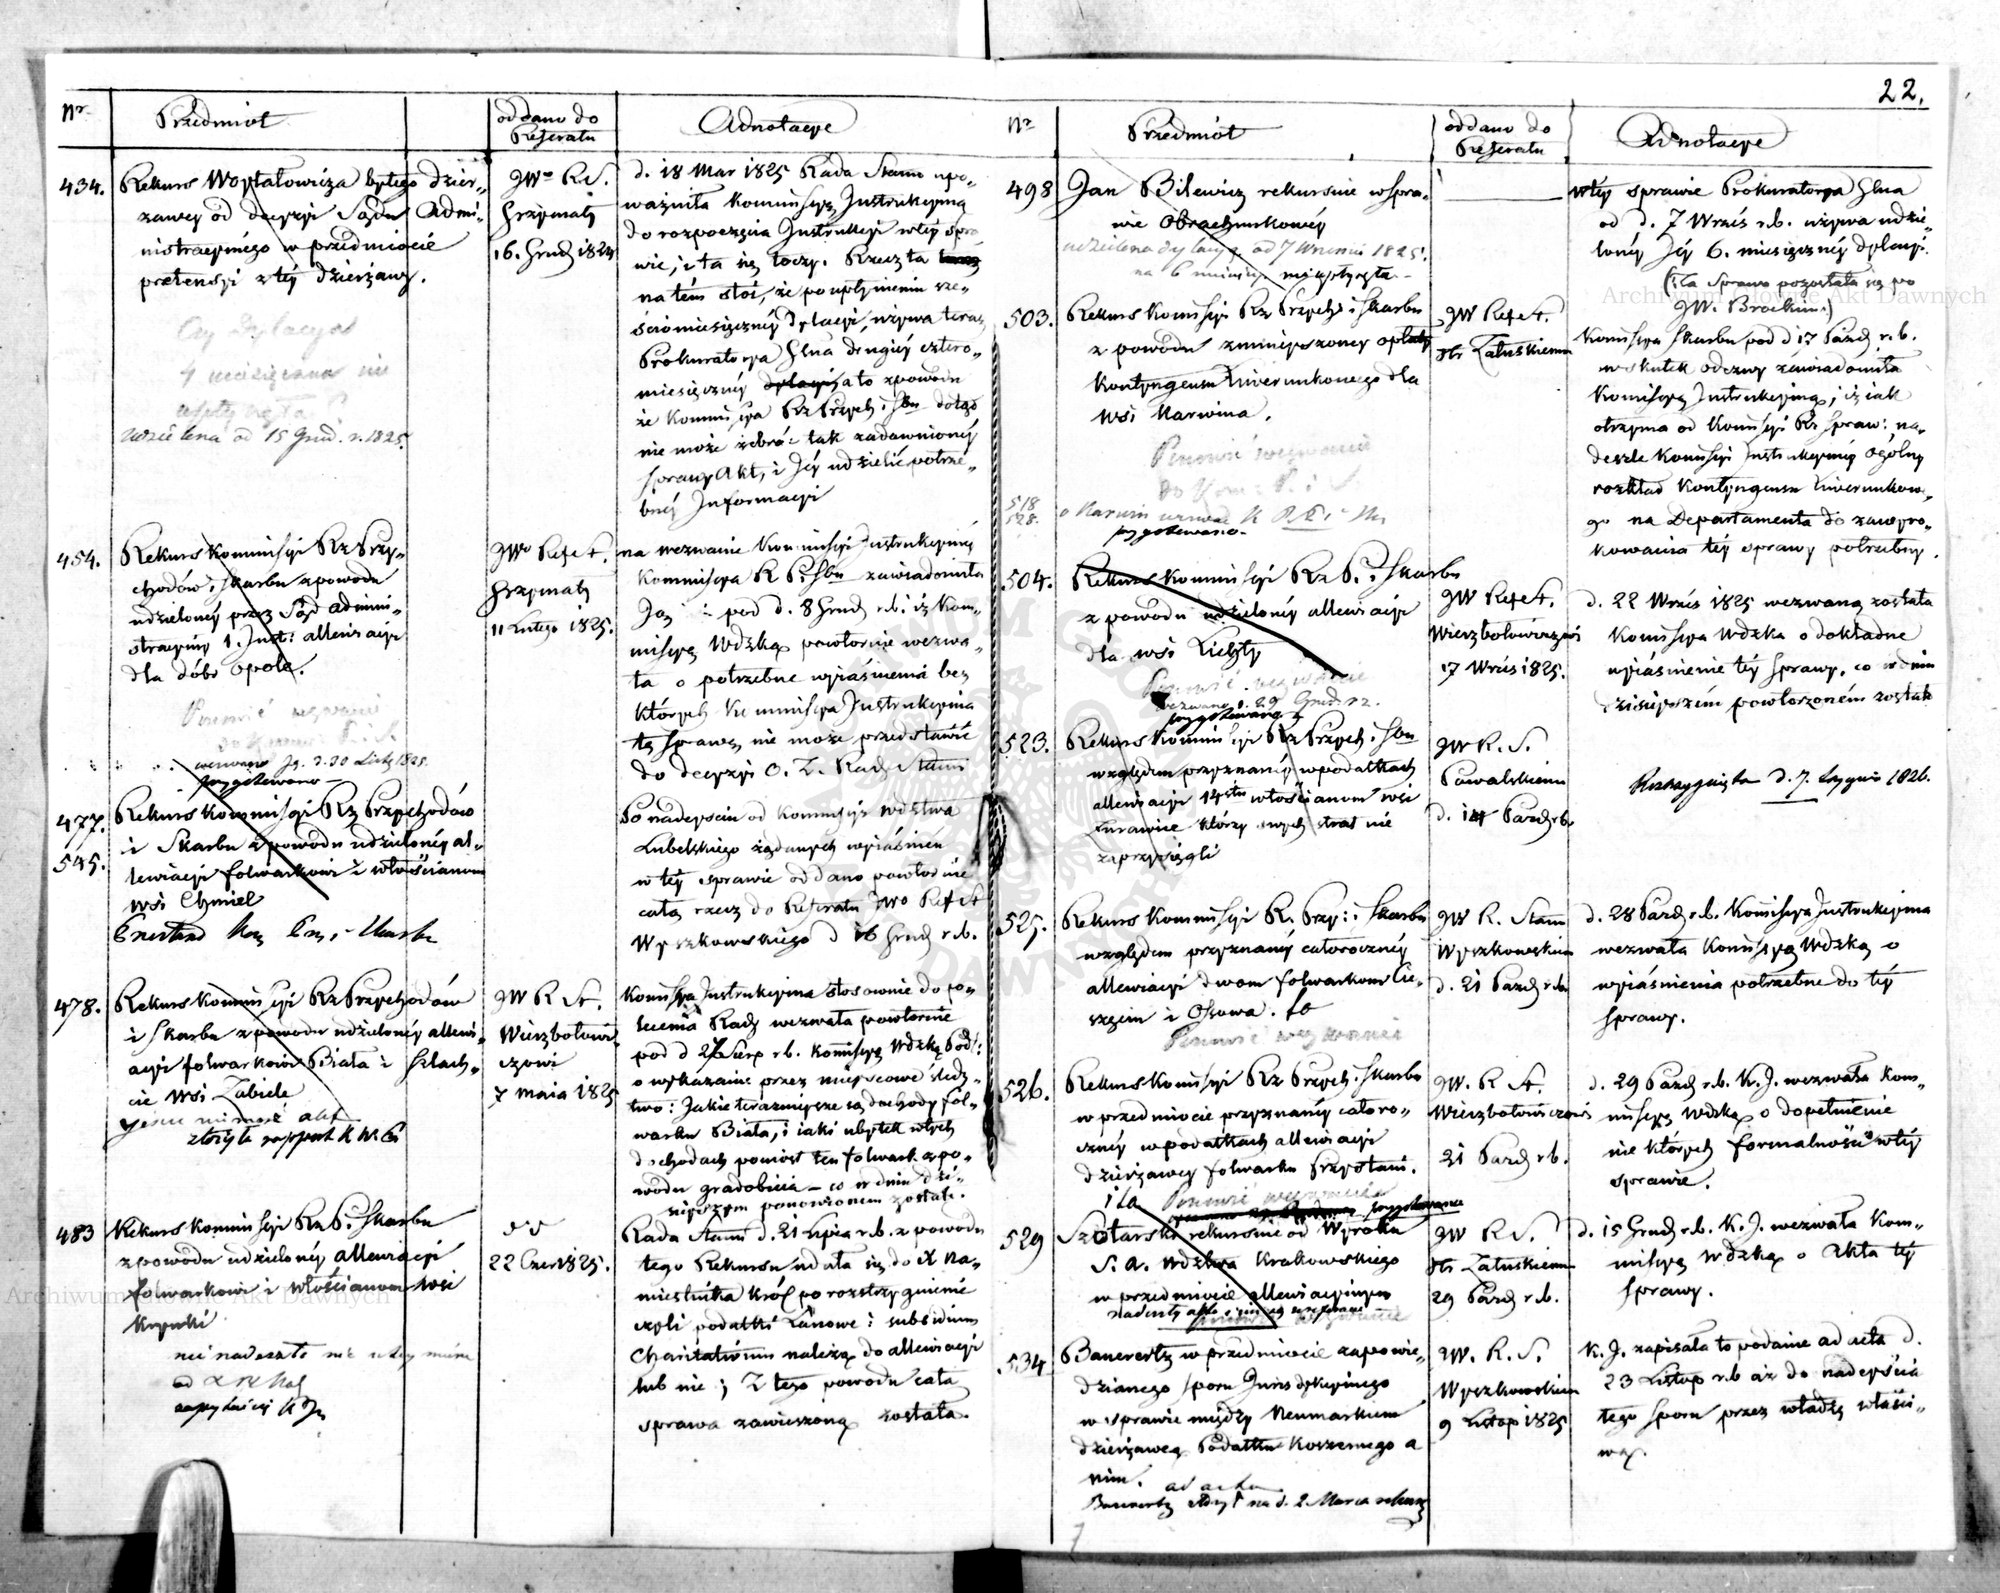 22.
Nr
Przedmiot
oddano do
Referatu
Adnotacye
434.
Rekurs Woytałowicza byłego dzier-
zawcy od decyzyi Sądu Admi-
nistracyinego w przedmiocie
pretensyi z tey dzierżawy.
4 miesięczna nie
udzielona od 15 Grud. r. 1825.
JWo R. S.
Grzymały
16. Grud 1824
d. 18 Mar 1825 Rada Stanu upo-
ważniła Kommissyą Instrukcyiną
do rozpoczęcia Instrukcyi w tey spra
wie, i ta się toczy. Rzecz ta
na tém stoi, że po upłynieniu sze-
ściomiesięczney dylacyi, używa teraz
Prokuratorya Glna drugiey cztero-
miesięczney dylacyi a to z powodu
że Kommissya Rz Przych: i Sbu dotąd
nie może zebrać tak zadawnioney
sprawy Akt, i Jey udzielić potrze-
bney Informacyi
454.
Rekurs Kommissyi Rz Przy-
chodów i Skarbu z powodu
udzieloney przez Sąd admini-
stracyiny 1. Inst: allewiacyi
dla dóbr Opole.
Ponowić wezwanie
wezwano Jg. d. 30 Listp 1825.
przygotowano
JWo Refet.
Grzymały
11 Lutego 1825.
na wezwanie Kommissyi Instrukcyiney
Kommissya R P. i Sbu zawiadomiła
Ją pod d. 8 Grud r.b. iż Kom-
missyą Wdzką powtórnie wezwa-
ła o potrzebne wyiaśnienia bez
których Kommissya Instrukcyina
tey sprawy nie może przedstawić
do decyzyi O. Z. Rady Stanu
477.
545.
Rekurs Kommissyi Rz Przychodów
i Skarbu z powodu udzieloney al-
lewiacyi folwarkowi i włościanom
wsi Chmiel
Po nadeyściu od Kommissyi Wdztwa
Lubelskiego żądanych wyiaśnień
w tey sprawie oddano powtórnie
całą rzecz do Referatu JWo Refet
Wyszkowskiego d 16 Grud r.b.
478.
Rekurs Kommissyi Rz Przychodów
i Skarbu z powodu udzieloney allewi-
acyi folwarkowi Biała i szlach-
cie wsi Zabiele
złożyła rapport K. W.
JW R. St.
Wierzbołowi-
czowi
7 maia 1825
Kommissya Instrukcyina stosownie do po-
lecenia Rady wezwała powtórnie
pod d 27 Sierp r.b. Komissyą Wdzką Podl:
o wykazanie przez mieyscowe śledz-
two: Jakie teraznieysze są dochody fol-
warku Biała, i iaki ubytek w tych
dochodach poniósł ten folwark z po-
wodu gradobicia – co w dniu dzi-
sieyszym ponowionem zostało.
483
Rekurs Kommissyi Rz P. i Skarbu
z powodu udzieloney allewiacyi
folwarkowi i włościanom wsi
Krynki
nie nadeszło
22 Czer 1825.
Rada Stanu d. 21 Lipca r.b. z powodu
tego Rekursu udała się do X Na-
miestnika Król po rozstrzygnienie
czyli podatki Łanowe i subsidium
Charitativum należą do allewiacyi
lub nie; Z tego powodu cała
sprawa zawieszoną została.
Nr
Przedmiot
oddano do
Referatu
Adnotacye
498
Jan Bilewicz rekursuie w spra-
wie Obrachunkowey
udzielona dylacya od 7 Września 1825.
na 6 miesięcy
w tey sprawie Prokuratorya Glna
od d. 7 Wrześ r.b. używa udzie-
loney Jey 6. miesięczney dylacyi.
(: ta sprawa pozostała się po
JW. Brockim :)
503.
Rekurs Komissyi Rz Przych: i Skarbu
z powodu zmnieyszoney opłaty
Kontyngensu liwerunkowego dla
wsi Karwina.
Ponowić wezwanie
518
528.
przygotowano.
JW Refet.
Hr. Załuskiemu
Komissya Skarbu pod d 17 Paźd r.b.
w skutek odezwy zawiadomiła
Komissyą Instrukcyiną, iż iak
otrzyma od Komissyi Rz Spraw: na-
deszle Komissyi Instrukcyiney ogólny
rozkład Kontyngensu liwerunkow-
go na Departamenta do zawyro-
kowania tey sprawy potrzebny.
504.
Rekurs Kommissyi Rz P. i Skarbu
z powodu udzieloney allewiacyi
dla wsi
Ponowić wezwanie
wezwano d. 29 Grud. r.
przygotowano
JW Refet.
Wierzbołowiczowi
17 Wrześ 1825.
d. 22 Wrześ 1825 wezwaną została
Komissya Wdzka o dokładne
wyiaśnienie tey sprawy, co w dniu
dzisieyszém powtórzoném zostało
523.
Rekurs Kommissyi Rz Przych: i Sbu
względem przyznaney w podatkach
allewiacyi 14stu włościanom wsi
Żurawice którzy swych strat nie
zaprzysięgli
JW R. S.
Powalskiemu
d. 14 Paźd r.b.
Rozstrzygnięta d. 7. Stycznia 1826.
525.
Rekurs Kommissyi R. Przy: i Skarbu
względem przyznaney całoroczney
allewiacyi dwom folwarkom Cie-
szęcin i Osowa.
Ponowić wezwanie
JW R. Stanu
Wyszkowskiemu
d. 21 Paźd r.b.
d. 28 Paźd r.b. Komissya Instrukcyina
wezwała Komissyą Wdzką o
wyiaśnienia potrzebne do tey
sprawy.
526.
Rekurs Komissyi Rz Przych. i Skarbu
w przedmiocie przyznaney całoro-
czney w podatkach allewiacyi
dzierżawcy folwarku Przystań.
Ponowić wezwanie
przygotowano
JW. R. St.
Wierzbołowiczowi
21 Paźd r.b.
d. 29 Paźd r.b. K. J. wezwała Kom-
missyą Wdzką o dopełnienie
nie których formalności w tey
sprawie.
529
Szotarski rekursuie od Wyroku
S. A. Wdztwa Krakowskiego
w przedmiocie allewiacyinym
JW R. S.
Hr. Załuskiemu
29 Paźd r.b.
d. 15 Grud r.b. K. J. wezwała Kom-
missyą Wdzką o Akta tey
sprawy.
534
Banerertz w przedmiocie zapowie-
dzianego sporu Jurisdykcyinego
w sprawie między Neumarkiem
dzierżawcą Podatku Koszernego a
nim.
ad acta
JW. R. S.
Wyszkowskiemu
9 Listop 1825
K. J. zapisała to podanie ad acta d.
23 Listop r.b aż do nadeyścia
tego sporu przez władzę właści-
wą.
Archiwum Główne Akt Dawnych
Archiwum Główne Akt Dawnych